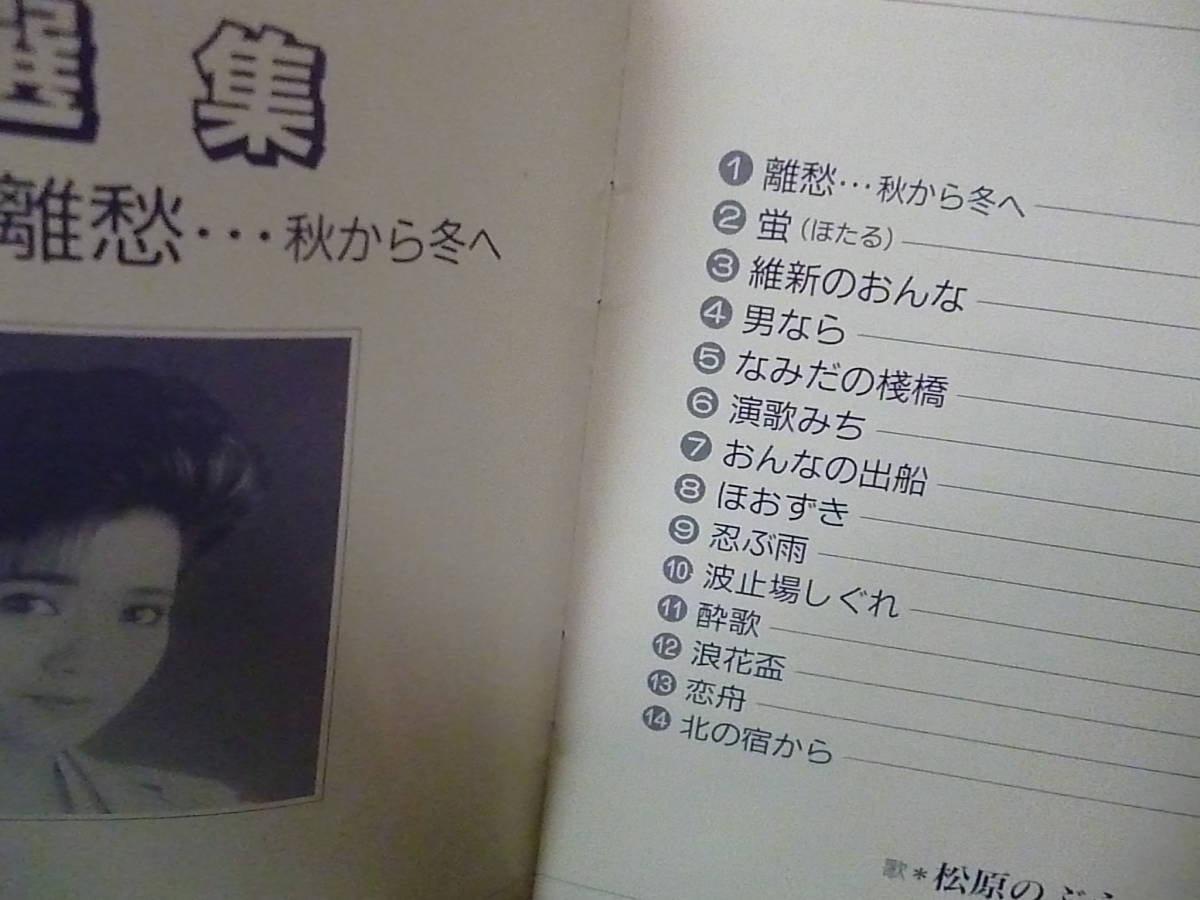 選集
離愁…秋から冬へ
1 離愁…秋から冬へ
2 蛍(ほたる)
3 維新のおんな
4 男なら
5 なみだの棧橋
6 演歌みち
7 おんなの出船
8 ほおずき
9 忍ぶ雨
10 波止場しぐれ
11 酔歌
12 浪花盃
13 恋舟
14 北の宿から
歌*松原のぶえ